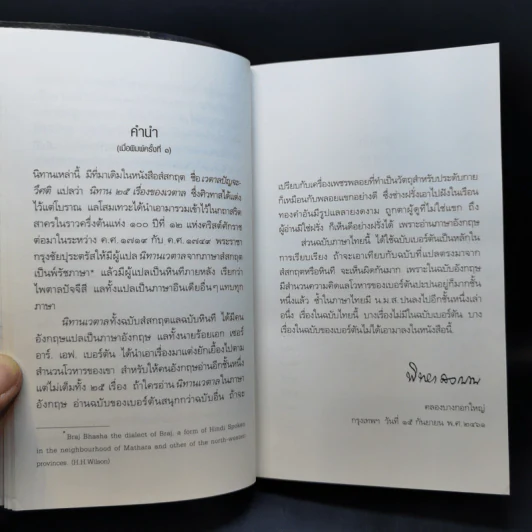 คำนำ
(เมื่อพิมพ์ครั้งที่ ๑)
นิทานเหล่านี้ มีที่มาเดิมในหนังสือสํสกฤต ชื่อเวตาลปัญจะ-
วีศติ แปลว่า นิทาน ๒๕ เรื่องของเวตาล ซึ่งศิวทาสได้แต่ง
ไว้แต่โบราณ แลโสมเทวะได้นำเอามารวมเข้าไว้ในกถาสริต
สาครในราวครึ่งต้นแห่ง ๑๐๐ ปีที่ ๑๒ แห่งคริสต์ศักราช
ต่อมาในระหว่าง ค.ศ. ๑๗๑๙ กับ ค.ศ. ๑๗๔๙ พระราชา
กรุงชัยปุระตรัสให้มีผู้แปล นิทานเวตาลจากภาษาสํสกฤต
เป็นพรัชภาษา* แล้วมีผู้แปลเป็นหินทีภายหลัง เรียกว่า
ไพตาลปัจจีสี แลทั้งแปลเป็นภาษาอินเดียอื่นๆ แทบทุก
ภาษา
นิทานเวตาลทั้งฉบับสํสกฤตแลฉบับหินที ได้มีคน
อังกฤษแปลเป็นภาษาอังกฤษ แลทั้งนายร้อยเอก เซอร์
อาร์. เอฟ. เบอร์ตัน ได้นำเอาเรื่องมาแต่งยักเยื้องไปตาม
สำนวนโวหารของเขา สำหรับให้คนอังกฤษอ่านอีกชั้นหนึ่ง
แต่ไม่เต็มทั้ง ๒๕ เรื่อง ถ้าใครอ่าน นิทานเวตาลในภาษา
อังกฤษ อ่านฉบับของเบอร์ตันสนุกกว่าฉบับอื่น ถ้าจะ
* Braj Bhasha the dialect of Braj, a form of Hindi Spoken
in the neighbourhood of Mathara and other of the north-western
provinces. (H.H.Wilson)
เปรียบกับเครื่องเพชรพลอยที่ทำเป็นวัตถุสำหรับประดับกาย
ก็เหมือนกับพลอยแขกอย่างดี ซึ่งช่างฝรั่งเอาไปฝังในเรือน
ทองคำอันมีรูปแลลายงดงาม ถูกตาผู้ดูที่ไม่ใช่แขก ถึง
ผู้อ่านมิใช่ฝรั่ง ก็เห็นดีอย่างฝรั่งได้ เพราะอ่านภาษาอังกฤษ
ส่วนฉบับภาษาไทยนี้ ได้ใช้ฉบับเบอร์ตันเป็นหลักใน
การเรียบเรียง ถ้าจะเอาเทียบกับฉบับที่แปลตรงมาจาก
สํสกฤตหรือหินที จะเห็นผิดกันมาก เพราะในฉบับอังกฤษ
มีสำนวนความคิดแลโวหารของเบอร์ตันปะปนอยู่ก็มากชั้น
หนึ่งแล้ว ซ้ำในภาษาไทยมี น.ม.ส. ปนลงไปอีกชั้นหนึ่งเล่า
อนึ่ง เรื่องในฉบับไทยนี้ บางเรื่องไม่มีในฉบับเบอร์ตัน บาง
เรื่องในฉบับของเบอร์ตันไม่ได้เอามาลงในหนังสือนี้.
คลองบางกอกใหญ่
กรุงเทพฯ วันที่ ๑๕ กันยายน พ.ศ. ๒๔๖๑